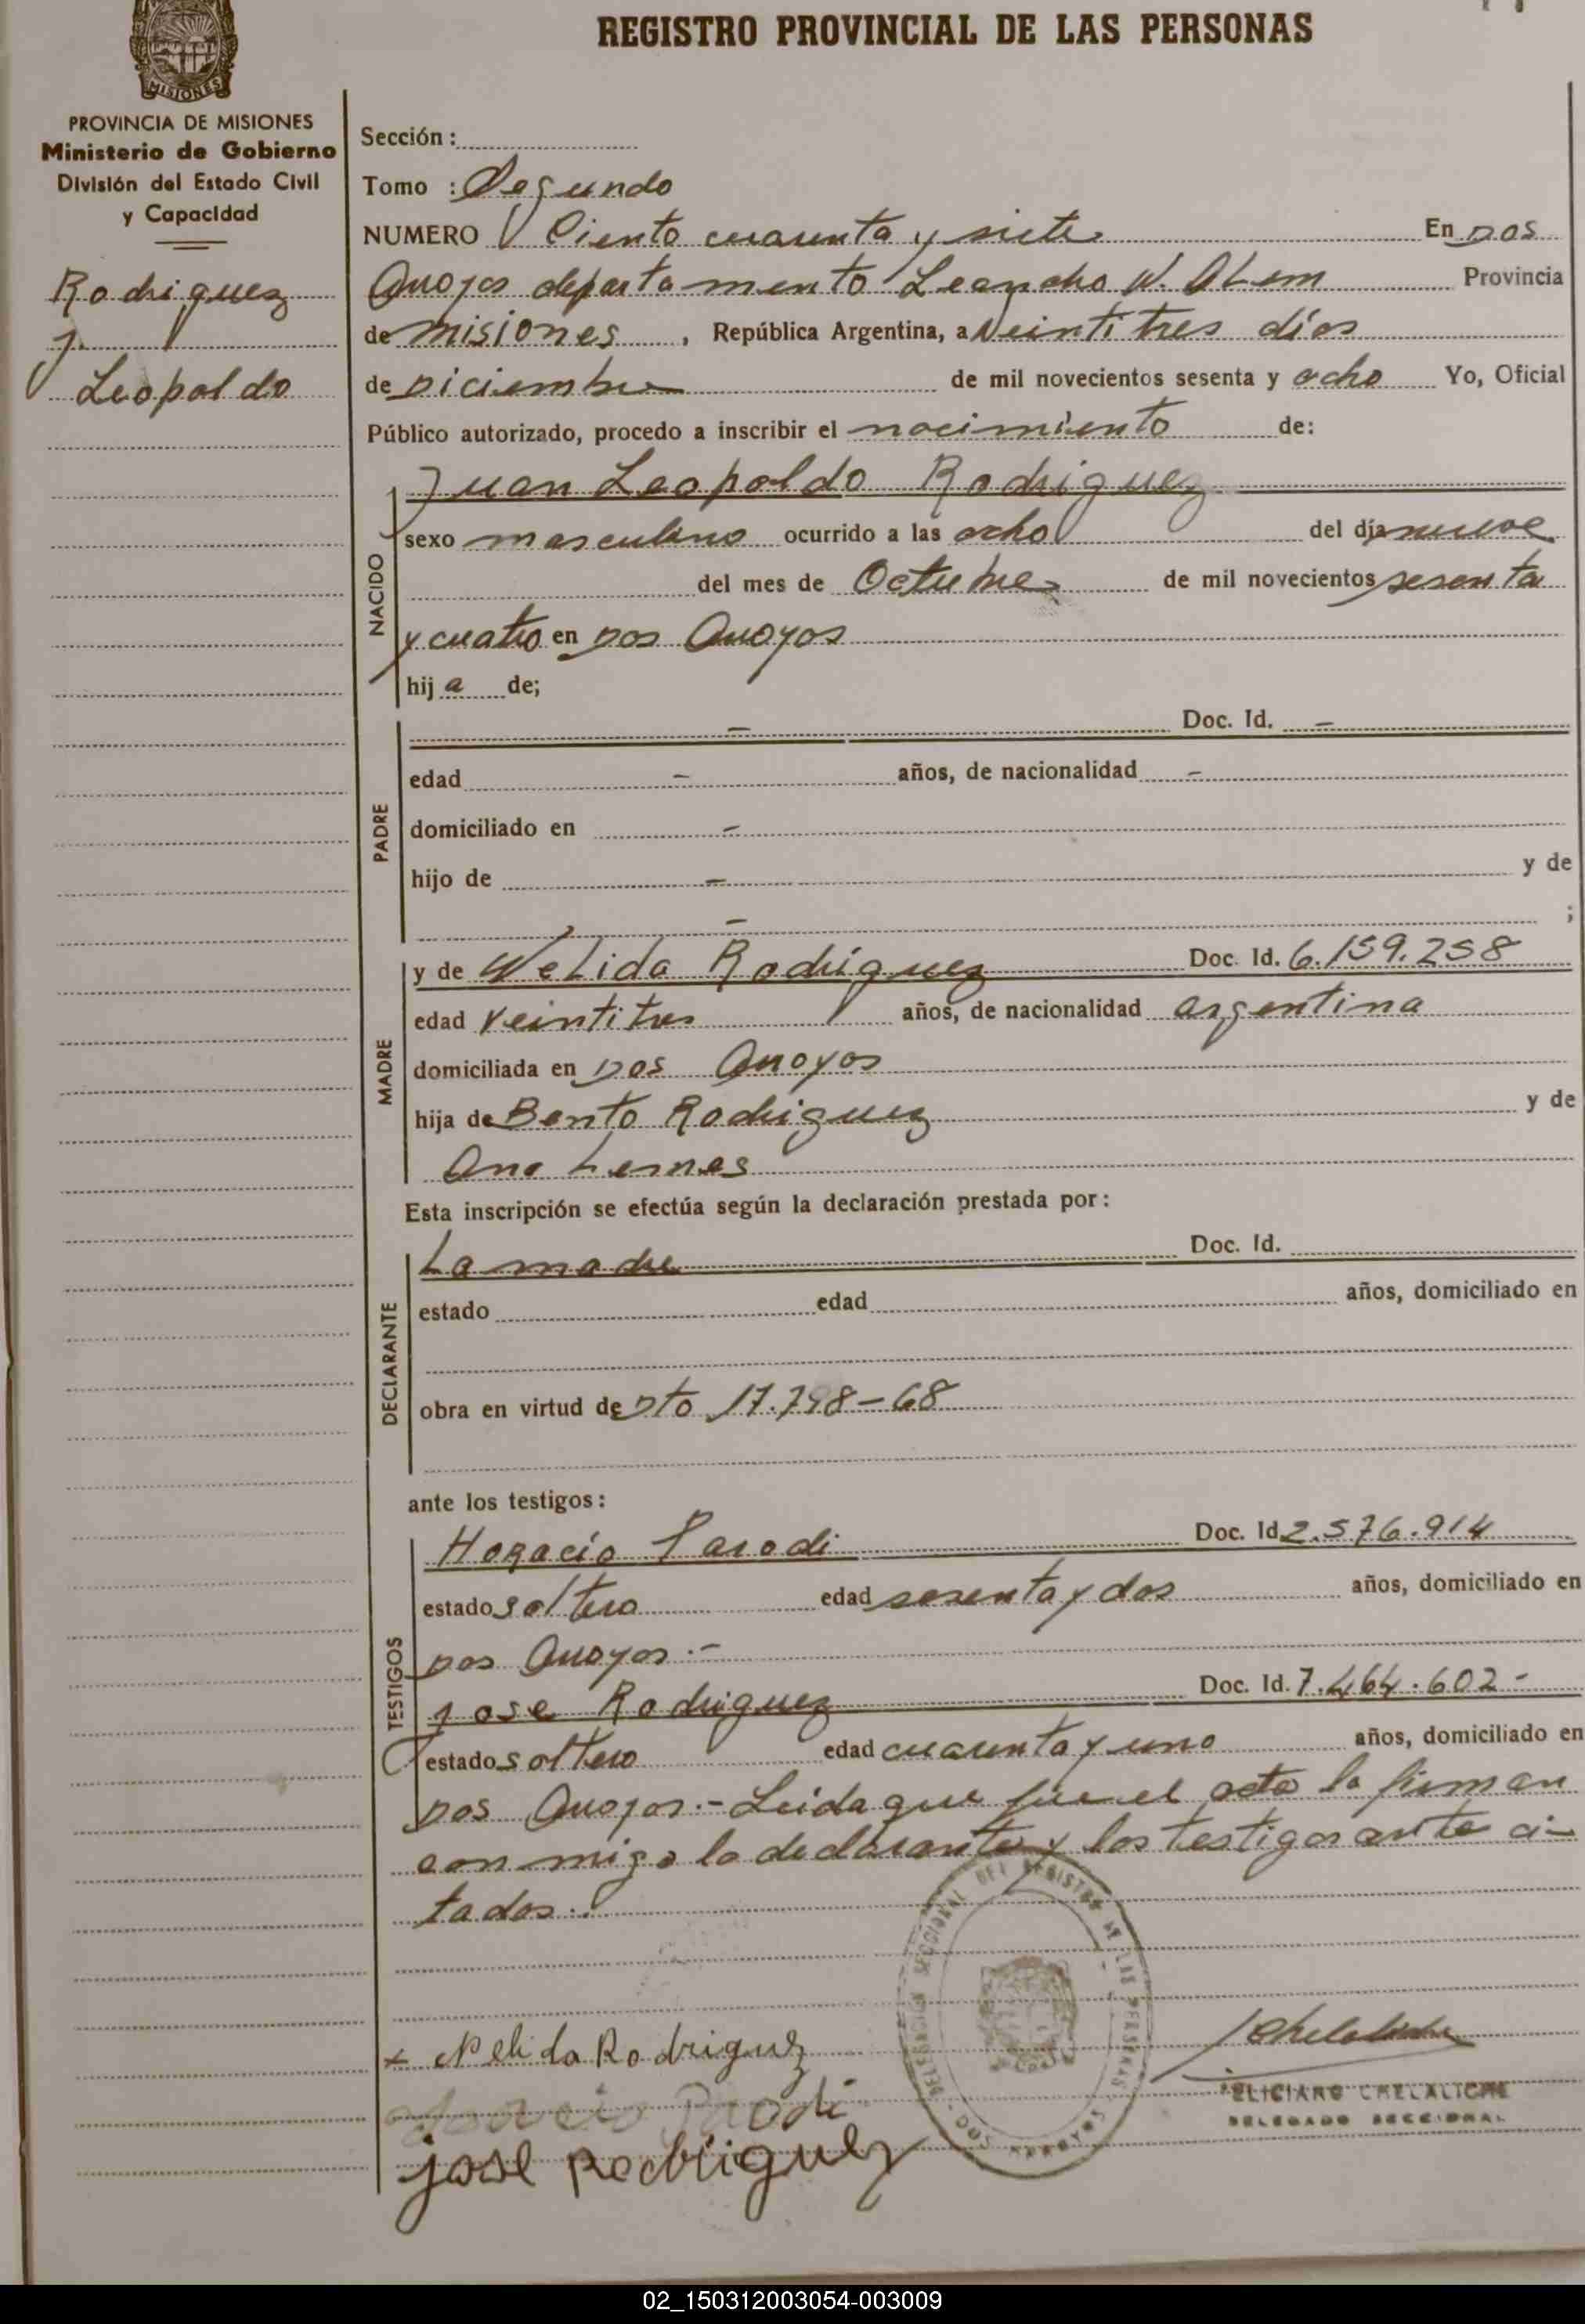 REGISTRO PROVINCIAL DE LAS PERSONAS
MISIONES
PROVINCIA DE MISIONES
Ministerio de Gobierno
División del Estado Civil
y Capacidad
Rodriguez
J.
Leopoldo
Sección:
Tomo : Segundo
NUMERO Ciento cuarenta y siete En Dos
Arroyos departamento Leandro N. Alem Provincia
de misiones, República Argentina, a Veintitres días
de Diciembre de mil novecientos sesenta y ocho Yo, Oficial
Público autorizado, procedo a inscribir el nacimiento de:
NACIDO
Juan Leopoldo Rodriguez
sexo masculino ocurrido a las ocho del día nueve
del mes de Octubre de mil novecientos sesenta
y cuatro en Dos Arroyos
hij a de;
PADRE
- Doc. Id. -
edad - años, de nacionalidad -
domiciliado en -
hijo de - y de
- ;
MADRE
y de Nelida Rodriguez Doc. Id. 6.159.258
edad Veintitres años, de nacionalidad argentina
domiciliada en Dos Arroyos
hija de Bento Rodriguez y de
Ana Lemes
Esta inscripción se efectúa según la declaración prestada por:
DECLARANTE
La madre Doc. Id.
estado edad años, domiciliado en
obra en virtud de Dto 17.798-68
ante los testigos:
TESTIGOS
Horacio Parodi Doc. Id 2.576.914
estado soltero edad sesenta y dos años, domiciliado en
Dos Arroyos.-
Jose Rodriguez Doc. Id. 7.464.602-
estado soltero edad cuarenta y uno años, domiciliado en
Dos Arroyos.- Leida que fue el acta la firman
con migo la declarante y los testigos ante ci-
tados.-
DELEGACION SECCIONAL DEL REGISTRO DE LAS PERSONAS
DOS ARROYOS
x Nelida Rodriguez
Horacio Parodi
jose Rodriguez
FELICIANO CHELALICHE
DELEGADO SECCIONAL
02_150312003054-003009